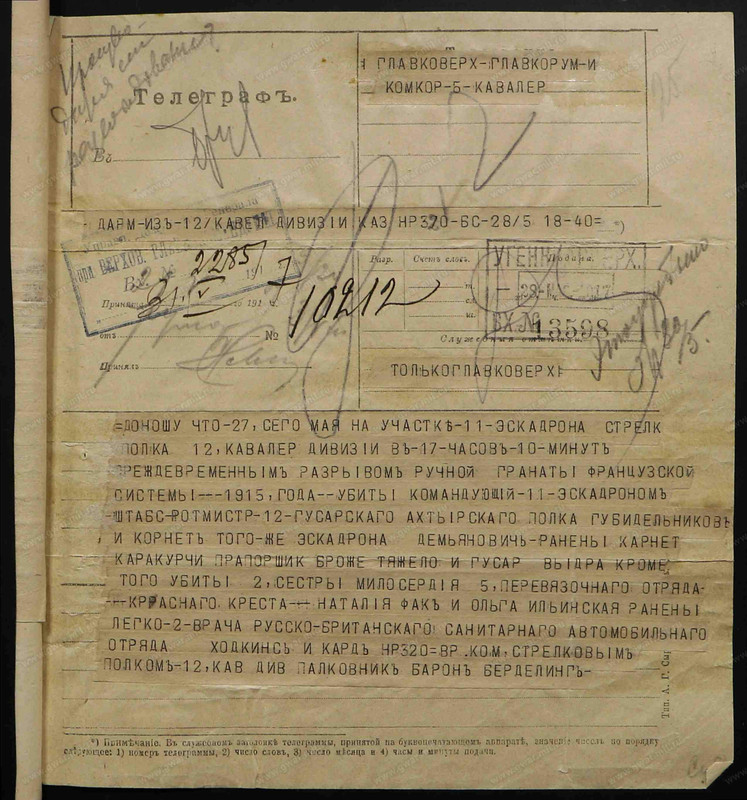 Телеграфъ.
Въ
ГЛАВКОВЕРХ-ГЛАВКОРУМ-И
КОМКОР-Б-КАВАЛЕР
ДАРМ-ИЗЪ-12/КАВЕЛ ДИВИЗIИ КАЗ НР320-БС-28/5 18-40= *)
2285
Разр.
Счетъ словъ.
Подана.
Принята
191
13598
№ 10212
отъ
Принялъ
ТОЛЬКОГЛАВКОВЕРХ
=ДОНОШУ ЧТО-27,СЕГО МАЯ НА УЧАСТКѢ-11-ЭСКАДРОНА СТРЕЛК
ПОЛКА 12,КАВАЛЕР ДИВИЗIИ ВЪ-17-ЧАСОВЪ-10-МИНУТЪ
ПРЕЖДЕВРЕМЕННЫМЪ РАЗРЫВОМЪ РУЧНОЙ ГРАНАТЫ ФРАНЦУЗСКОЙ
СИСТЕМЫ---1915,ГОДА--УБИТЫ КОМАНДУЮЩIЙ-11-ЭСКАДРОНОМЪ
ШТАБС-РОТМИСТР-12-ГУСАРСКАГО АХТЫРСКАГО ПОЛКА ГУБИДЕЛЬНИКОВЪ
И КОРНЕТЪ ТОГО-ЖЕ ЭСКАДРОНА ДЕМЬЯНОВИЧЬ-РАНЕНЫ КАРНЕТ
КАРАКУРЧИ ПРАПОРШИК БРОЖЕ ТЯЖЕЛО И ГУСАР ВЫДРА КРОМЕ
ТОГО УБИТЫ 2,СЕСТРЫ МИЛОСЕРДIЯ 5,ПЕРЕВЯЗОЧНАГО ОТРЯДА-
---КРАСНАГО КРЕСТА---НАТАЛIЯ ФАКЪ И ОЛЬГА ИЛЬИНСКАЯ РАНЕНЫ
ЛЕГКО-2-ВРАЧА РУССКО-БРИТАНСКАГО САНИТАРНАГО АВТОМОБИЛЬНАГО
ОТРЯДА ХОДКИНСЪ И КАРДЪ НР320=ВР.КОМ,СТРЕЛКОВЫМЪ
ПОЛКОМЪ-12,КАВ ДИВ ПАЛКОВНИК БАРОНЪ БЕРДЕЛИНГЪ-
*) Примѣчанiе. Въ служебномъ заголовкѣ телеграммы, принятой на буквопечатающемъ аппаратѣ, значенiе чиселъ по порядку
слѣдующее: 1) номеръ телеграммы, 2) число словъ, 3) число мѣсяца и 4) часы и минуты подачи.